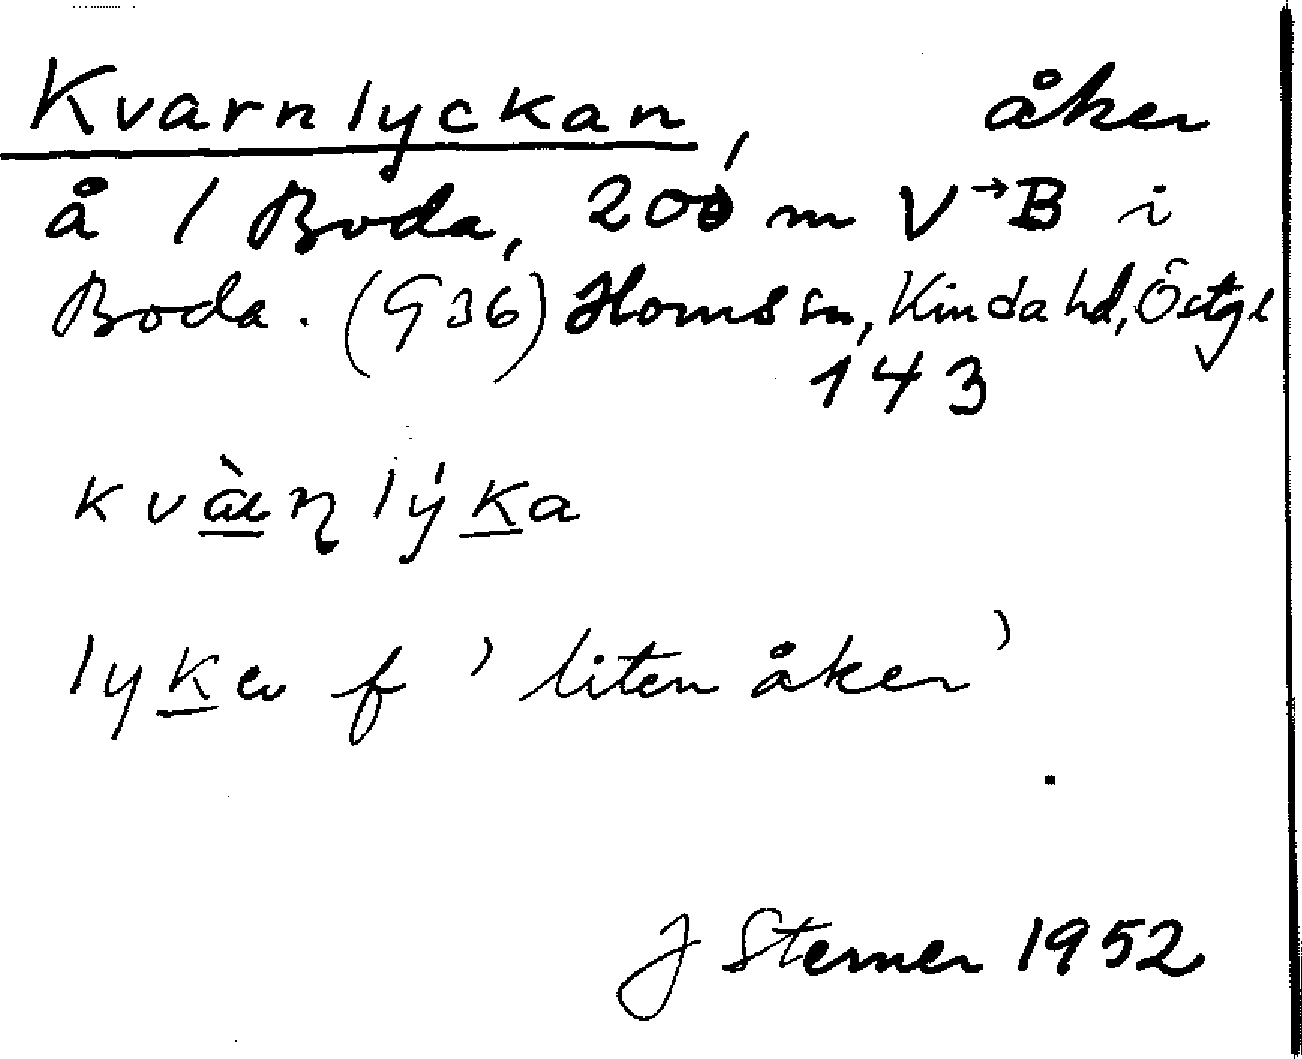 Kvarnlyckan, åker
å 1 Boda, 200 m V→B i
Boda. (G36) Horns sn, Kinda hd, Östgl
143
kvæ̀ɳlýka
lyka f 'liten åker'
J Sterner 1952